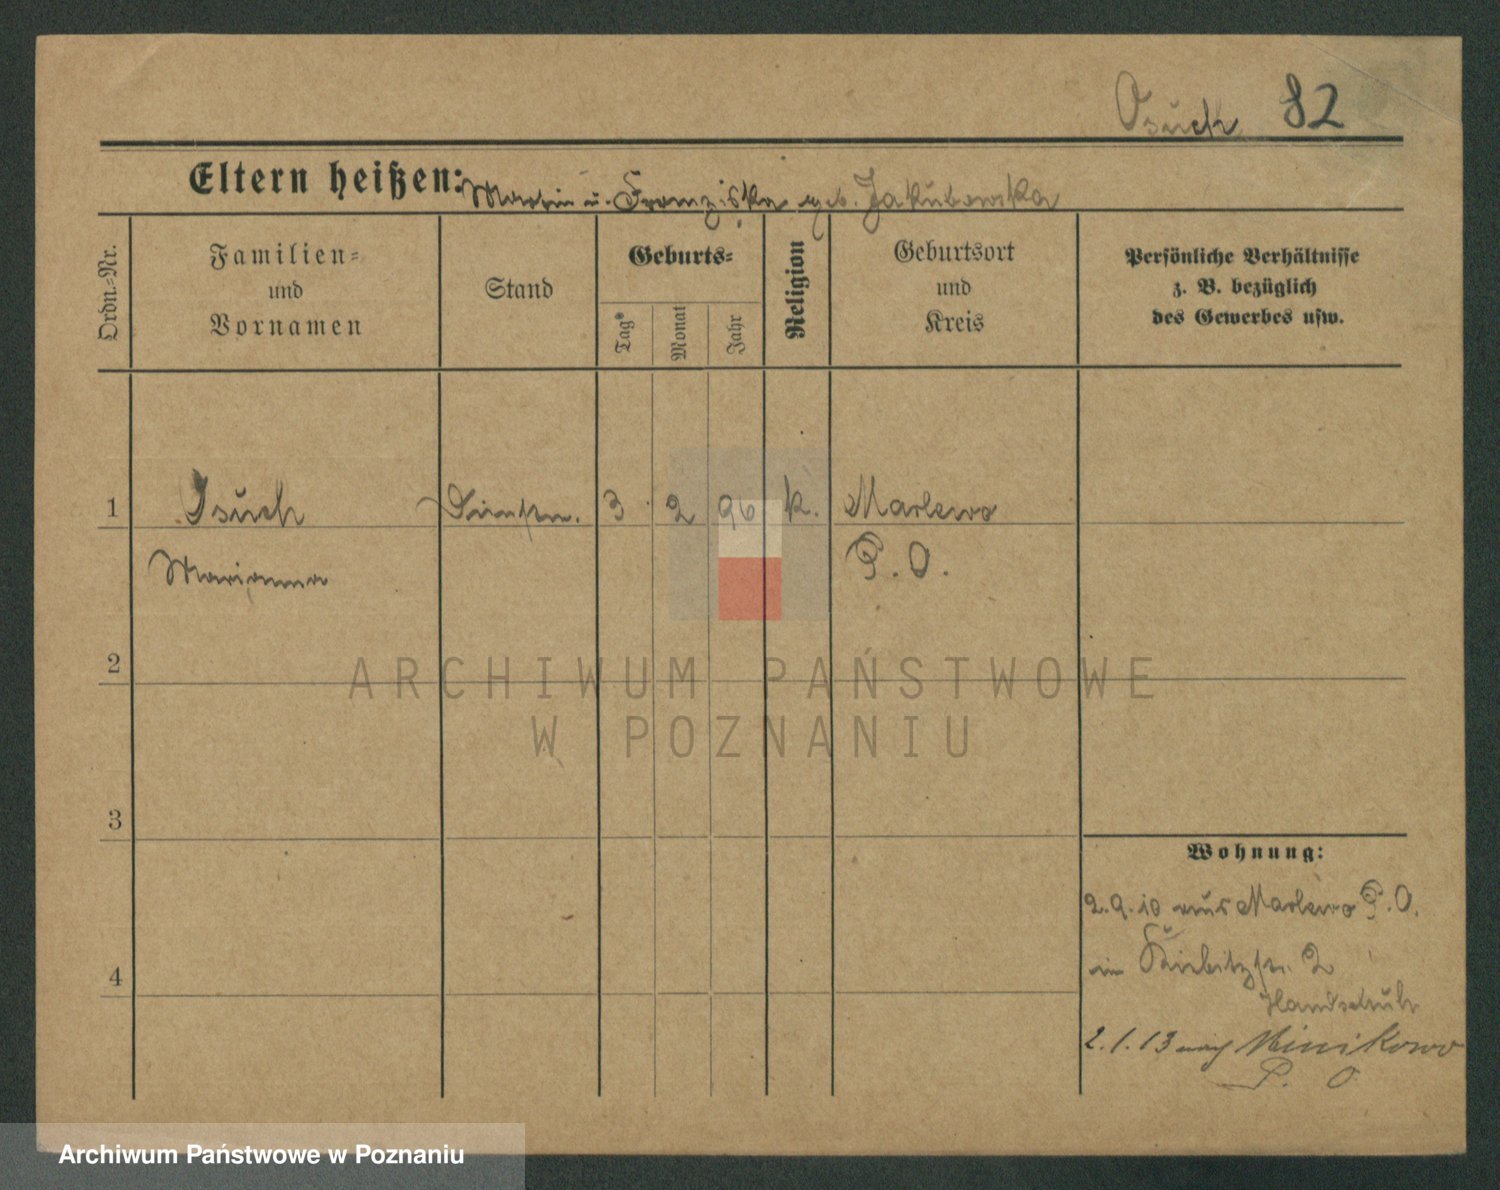 Osuch 82
Eltern heißen: Martin u. Franziska geb. Jakubowska
Ordn.-Nr.
Familien-
und
Vornamen
Stand
Geburts-
Tag
Monat
Jahr
Religion
Geburtsort
und
Kreis
Persönliche Verhältnisse
z. B. bezüglich
des Gewerbes usw.
1 Osuch 3 2 96 k. Marlewo
Marianna P. O.
2
ARCHIWUM PAŃSTWOWE
W POZNANIU
3
Wohnung:
2.9.10 aus Marlewo P. O.
in Kiebitzstr. 2
4
Handschuh
2.1.13 nach Minikowo
P. O
Archiwum Państwowe w Poznaniu